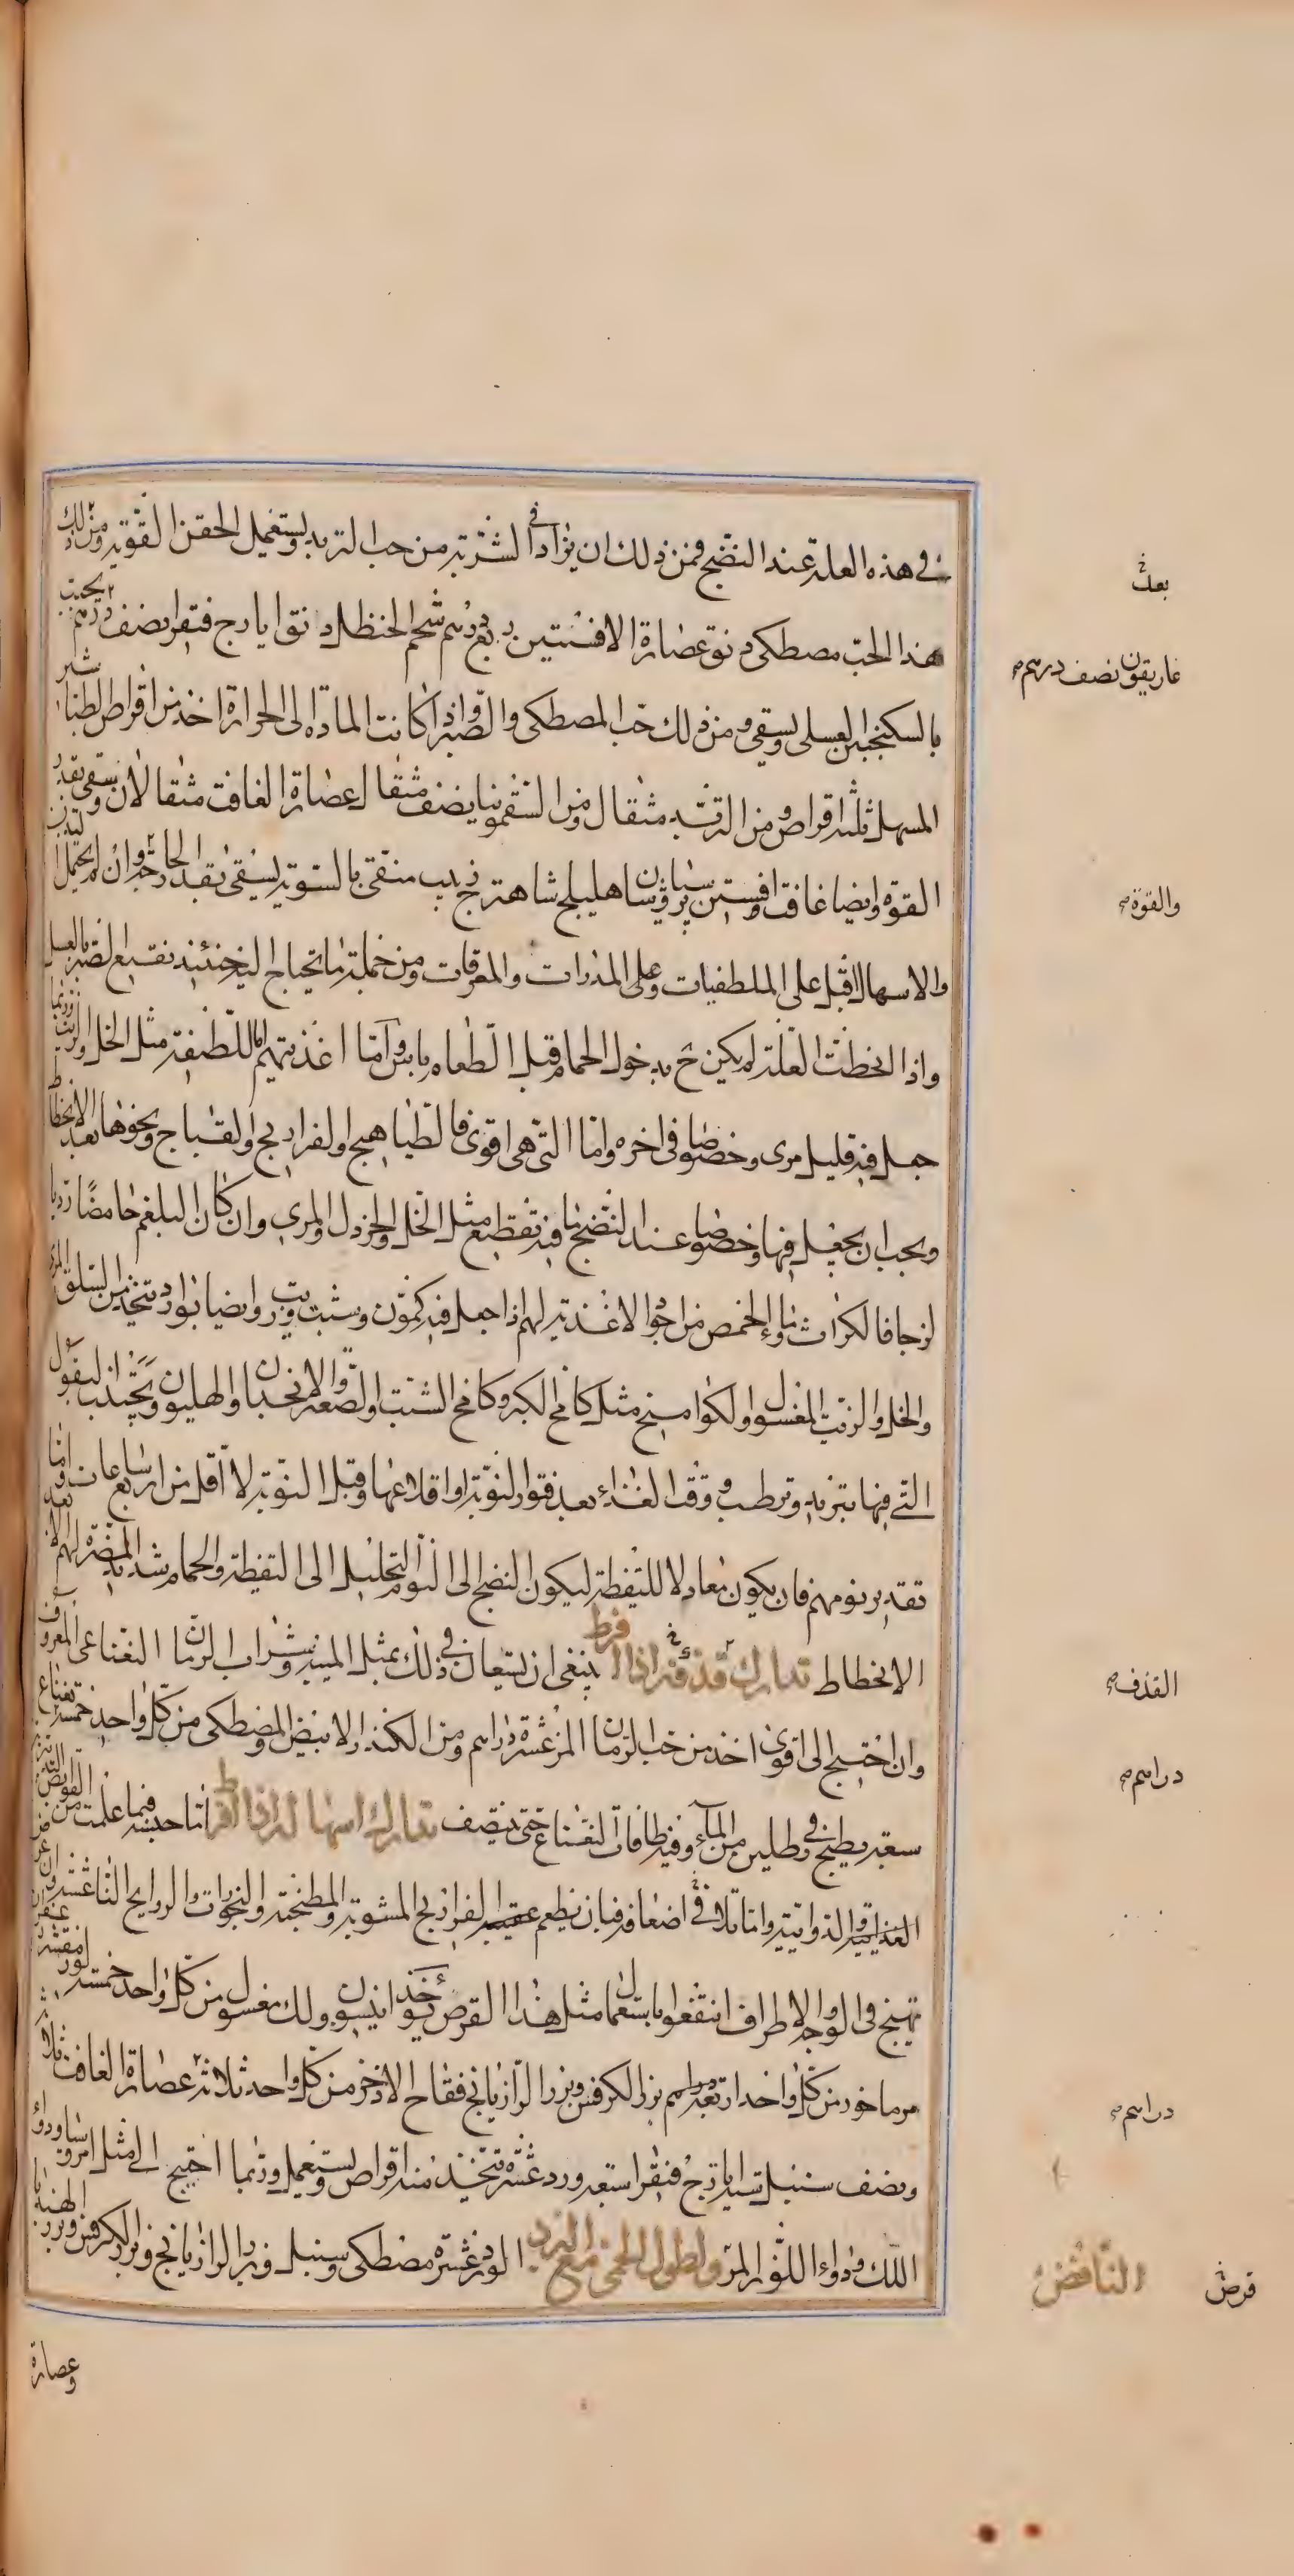 في هذه العلة عند النضج فمن ذلك ان يزاد في الشربة من حب التربد ويستعمل الحقن القوية ومن ذلك
هذا الحب مصطكى دانق عصارة الافسنتين ربع درهم شحم الحنظل دانق ايارج فيقرا نصف درهم يحبب
بالسكنجبين العسلى ويسقى ومن ذلك حب المصطكى والصبر واذا كانت المادة الى الحرارة اخذ من اقراص الطباشير
المسهل ثلثة اقراص ومن التربد مثقال ومن السقمونيا نصف مثقال عصارة الغافت مثقالان ويسقى بقدر
القوة وايضا غافت وافسنتين برسياوشان شاهترج زبيب منقى بالسوية يسقى بقدر الحاجة وان لم يحتمل
والاسهال اقبل على الملطفات وعلى المدرات والمعرقات ومن جملة ما يحتاج اليه حينئذ نقيع الصبر بالعسل
واذا انحطت العلة لم يكن ح بدخول الحمام قبل الطعام باس واما اغذيتهم اما اللطيفة مثل الخل والزيت وربما
جعل فيه قليل مرى وخصوصا في اخره واما التى هى اقوى فالطياهيج والفراريج والقباج ونحوها بعد الانحطاط
ويجب ان يجعل فيها وخصوصا عند النضج ما فيه تقطيع مثل الخل والخردل والمرى وان كان البلغم حامضا رديا
لزجا فالكراث وماء الحمص من اجود الاغذية لهم اذا جعل فيه كمون وشبت وزيت وايضا بوارد تتخذ من السلق والمرى
والخل والزيت المغسول والكواميخ مثل كامخ الكبر وكامخ الشبت والصعتر والانجدان والهليون ويجتنب البقول
التى فيها تبريد وترطيب ووقت الغذاء بعد فتور النوبة او اقلاعها وقبل النوبة لا اقل من اربع ساعات واما
تقدير نومهم فان يكون معادلا لليقظة ليكون النضج الى النوم والتحليل الى اليقظة والحمام شديد المضرة لهم الا بعد
الانحطاط تدارك قذفه اذا افرط ينبغى ان يستعان في ذلك بمثل الميبة وشراب الرمان النعناعى المعروف
وان احتيج الى اقوى اخذ من حب الرمان المز عشرة دراهم ومن الكندر الابيض والمصطكى من كل واحد خمسة نعناع
سبعة يطبخ في رطلين من الماء وفيه طاقات النعناع حتى ينتصف تدارك اسهاله اذا افرط اما حبسه فيما علمت من القوابض
الغذائية والدوائية واما تلافي اضعافه فبان يطعم عقيبه الفراريج المشوية والمطجنة والبخورات والروايح
تهيج في الوجه والاطراف انتفعوا باستعمال مثل هذا القرص يؤخذ انيسون ولك مغسول من كل واحد خمسة لوز مقشر
مرماخور من كل واحد اربعة دراهم بزر الكرفس وبزر الرازيانج فقاح الاذخر من كل واحد ثلاثة عصارة الغافت ثلاثة
ونصف سنبل ستة ايارج فيقرا سبعة ورد عشرة تتخذ منه اقراص ويستعمل وربما احتيج الى مثل امروسيا ودواء
اللك ودواء اللوز المر ولطول الحمى مع البرد الورد عشرة مصطكى وسنبل وبزر الرازيانج وبزر الكرفس وبزر الهندبا
وعصارة
غاريقون نصف درهم صح
والقوة صح
القذف صح
دراهم صح
دراهم صح
النافض
قرص